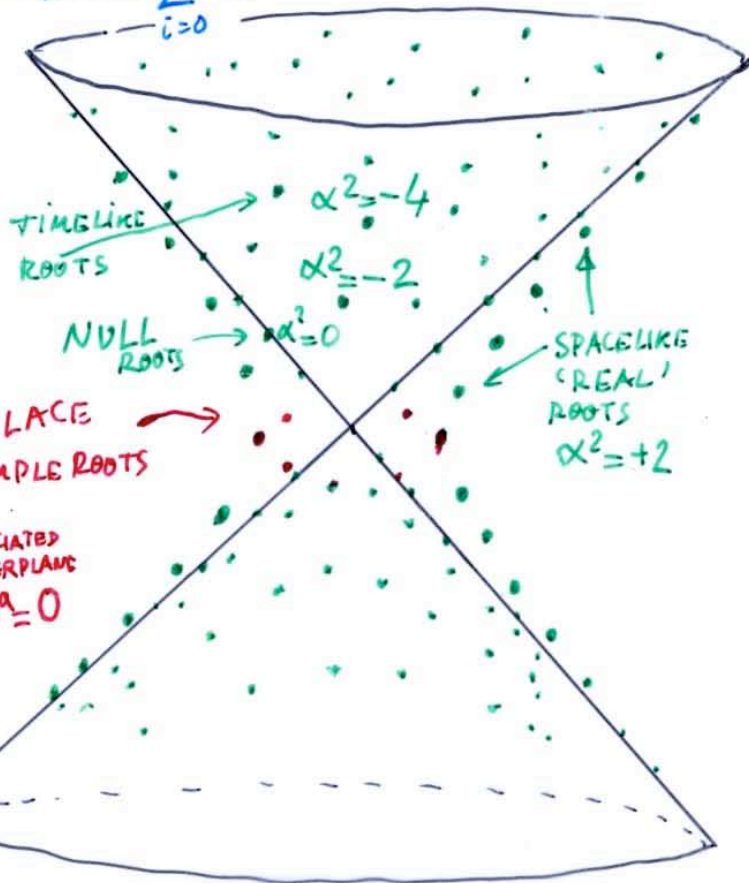 i=0
TIMELIKE
ROOTS
α²=-4
α²=-2
NULL
ROOTS
α²=0
SPACELIKE
'REAL'
ROOTS
α²=+2
LACE
MPLE ROOTS
IATED
ERPLANE
=0